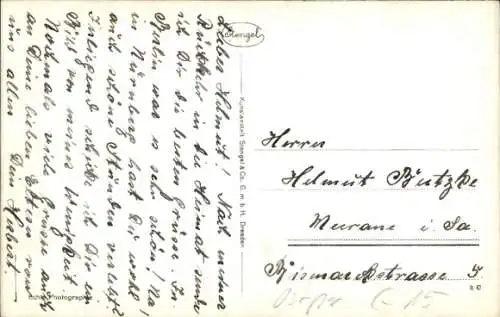 Lieber Helmut! Nach meiner
Rückkehr in die Heimat sende
ich Dir die besten Grüsse. In
Berlin war es sehr schön! Na,
in Nürnberg hast Du wohl
auch schöne Stunden verlebt?
Inliegend schicke ich Dir ein
Bild von meiner Wenigkeit.
Nochmals viele Grüsse auch
an Deine lieben Eltern von
uns allen Dein Herbert.
Echte Photographie
Stengel
Kunstanstalt Stengel & Co. G. m. b. H., Dresden
Herrn
Helmut Butzke
Meerane i. Sa.
Bismarckstrasse 5